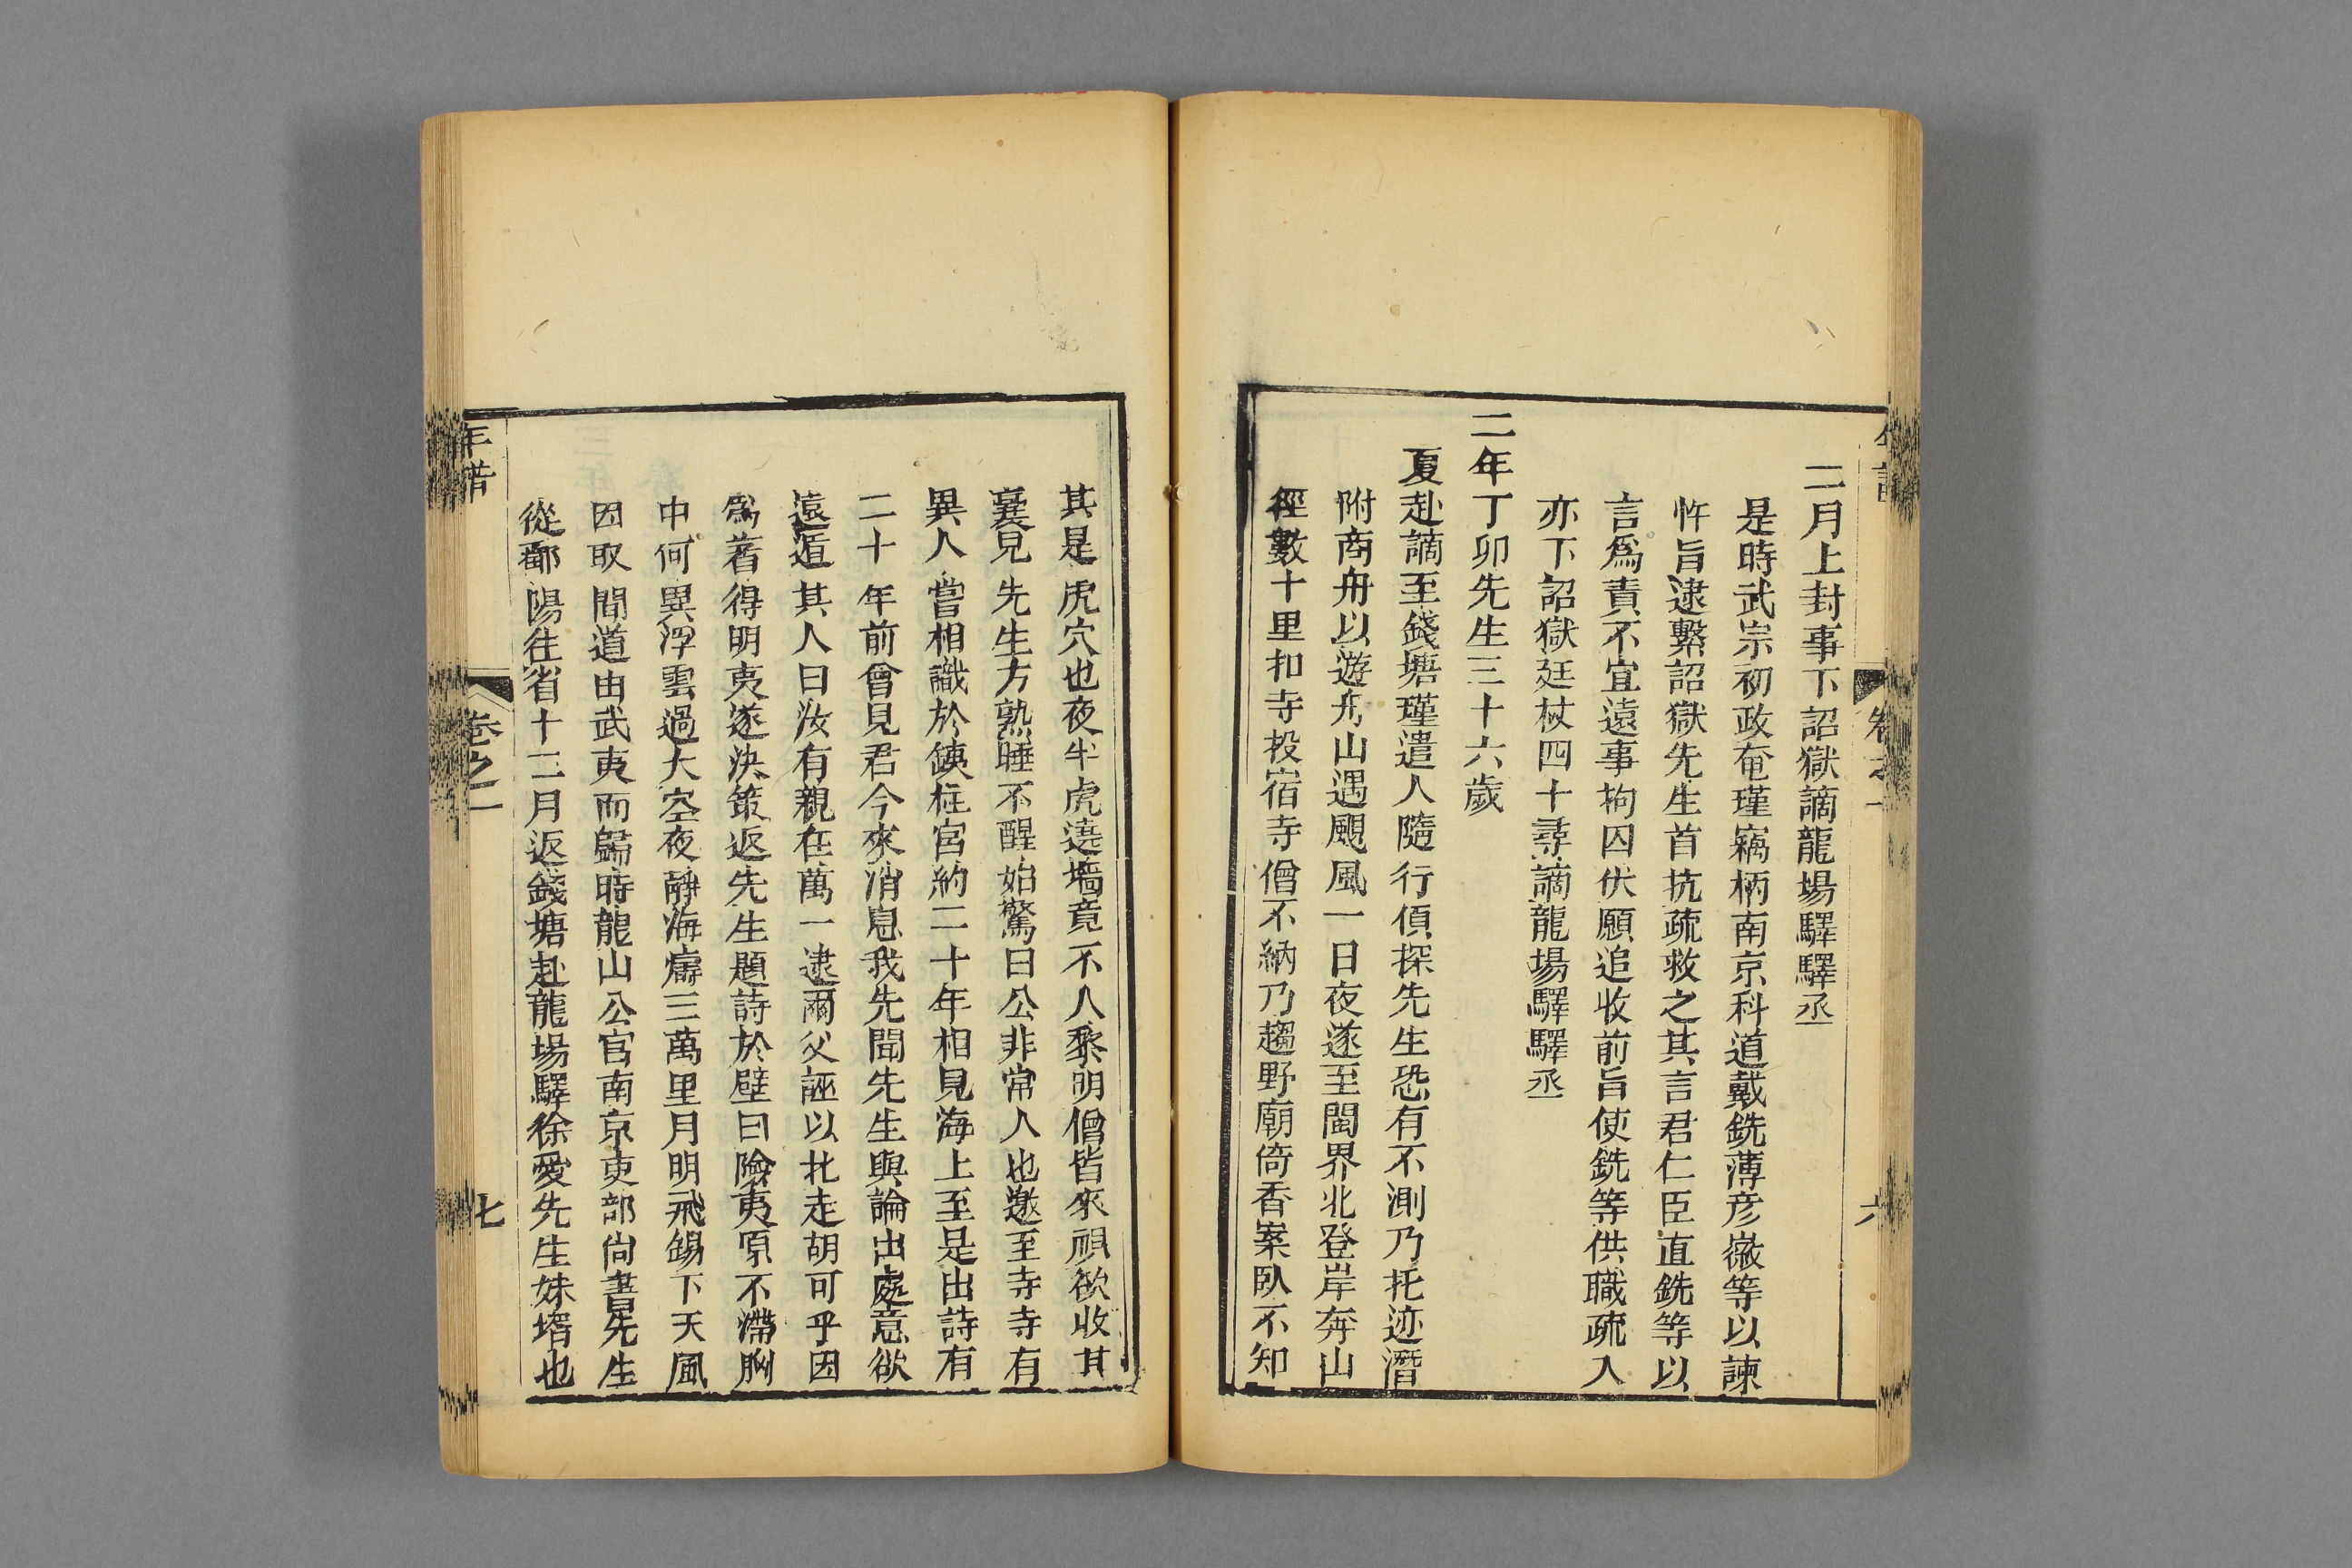 二月上封事下詔獄謫龍場驛驛丞
是時武宗初政奄瑾竊柄南京科道戴銑薄彦徽等以諫
忤旨逮繫詔獄先生首抗疏救之其言君仁臣直銑等以
言爲責不宜遠事拘囚伏願追收前旨使銑等供職疏入
亦下詔獄廷杖四十尋謫龍場驛驛丞
二年丁卯先生三十六歲
夏赴謫至錢塘瑾遣人隨行偵探先生恐有不測乃托迹潛
附商舟以遊舟山遇颶風一日夜遂至閩界北登岸奔山
徑數十里扣寺投宿寺僧不納乃趨野廟倚香案臥不知
卷之一
六
其是虎穴也夜半虎遶墻竟不入黎明僧皆來視欲收其
囊見先生方熟睡不醒始驚曰公非常人也邀至寺寺有
異人嘗相識於鐵柱宮約二十年相見海上至是出詩有
二十年前曾見君今來消息我先聞先生與論出處意欲
遠遁其人曰汝有親在萬一逮爾父誣以北走胡可乎因
爲蓍得明夷遂決策返先生題詩於壁曰險夷原不滯胸
中何異浮雲過大空夜靜海濤三萬里月明飛錫下天風
因取間道由武夷而歸時龍山公官南京吏部尚書先生
從鄱陽往省十二月返錢塘赴龍場驛徐愛先生妹壻也
年譜
卷之一
七